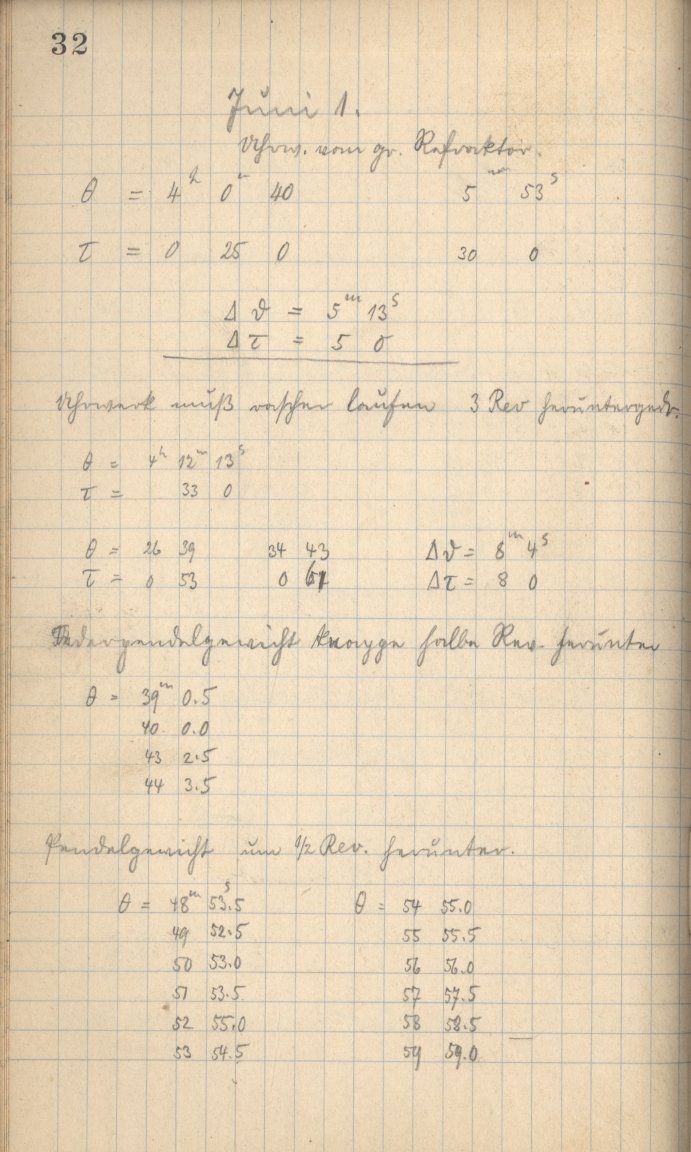 32
Juni 1.
Uhrw. vom gr. Refraktor.
θ = 4h 0m 40 5m 53s
τ = 0 25 0 30 0
Δ ϑ = 5m 13s
Δ τ = 5 0
Uhrwerk muß rascher laufen 3 Rev heruntergedr.
θ = 4h 12m 13s
τ = 33 0
θ = 26 39 34 43 Δϑ = 8m 4s
τ = 0 53 0 61 Δτ = 8 0
Federpendelgewicht knappe halbe Rev. herunter
θ = 39m 0.5
40 0.0
43 2.5
44 3.5
Pendelgewicht um 1/2 Rev. herunter.
θ = 48m 53.5s θ = 54 55.0
49 52.5 55 55.5
50 53.0 56 56.0
51 53.5 57 57.5
52 55.0 58 58.5
53 54.5 59 59.0